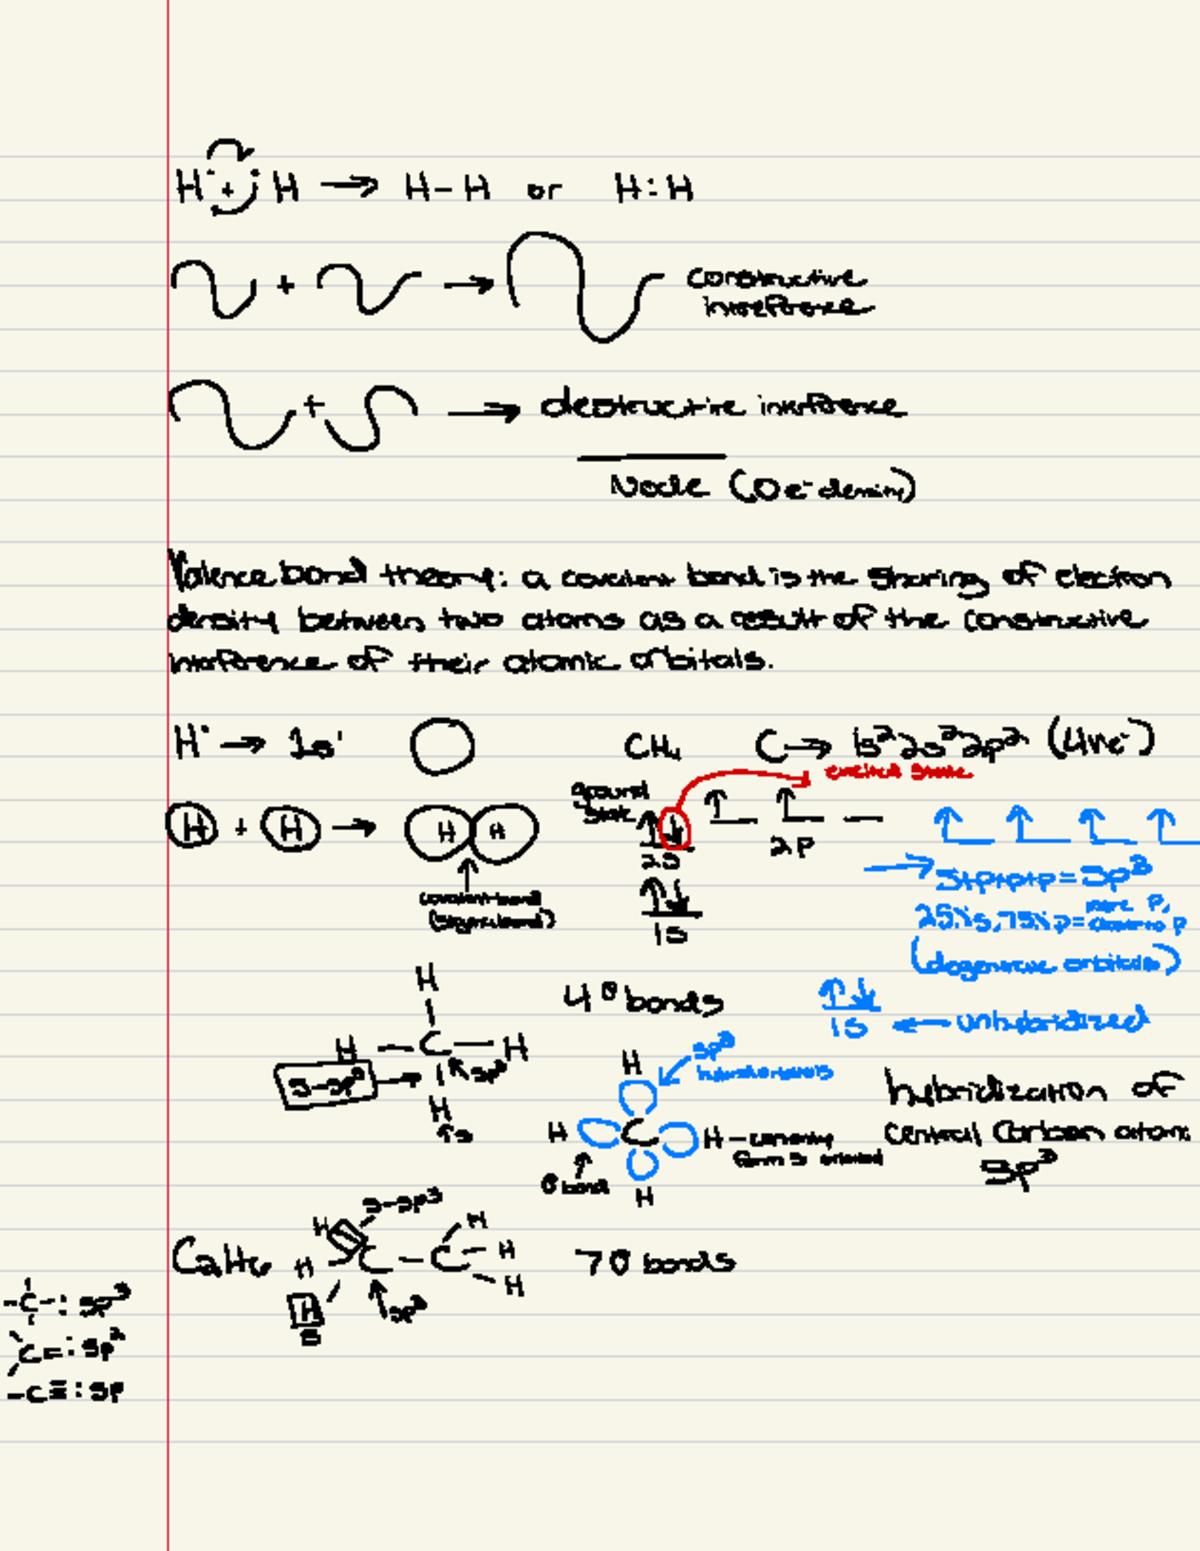 H· + ·H → H–H or H:H
+ → constructive
interference
+ → destructive interference
Node (0 e⁻ density)
Valence bond theory: a covalent bond is the sharing of electron
density between two atoms as a result of the constructive
interference of their atomic orbitals.
H· → 1s¹
CH₄ C → 1s²2s²2p² (4ve⁻)
excited state
ground
state
H + H → H H
2s
2p
covalent bond
(sigma bond)
1s
→ s+p+p+p = sp³
25% s, 75% p = more p,
closer to p
(degenerate orbitals)
1s ← unhybridized
4 σ bonds
H
H – C – H
sp³
s–sp³ →
H
↑s
sp³
hybrid orbitals
H
H C H –
H
σ bond
hybridization of
central carbon atom:
sp³
C₂H₆
s–sp³
H H
H C – C – H
H H
s
sp³
7 σ bonds
–C– : sp³
C= : sp²
–C≡ : sp